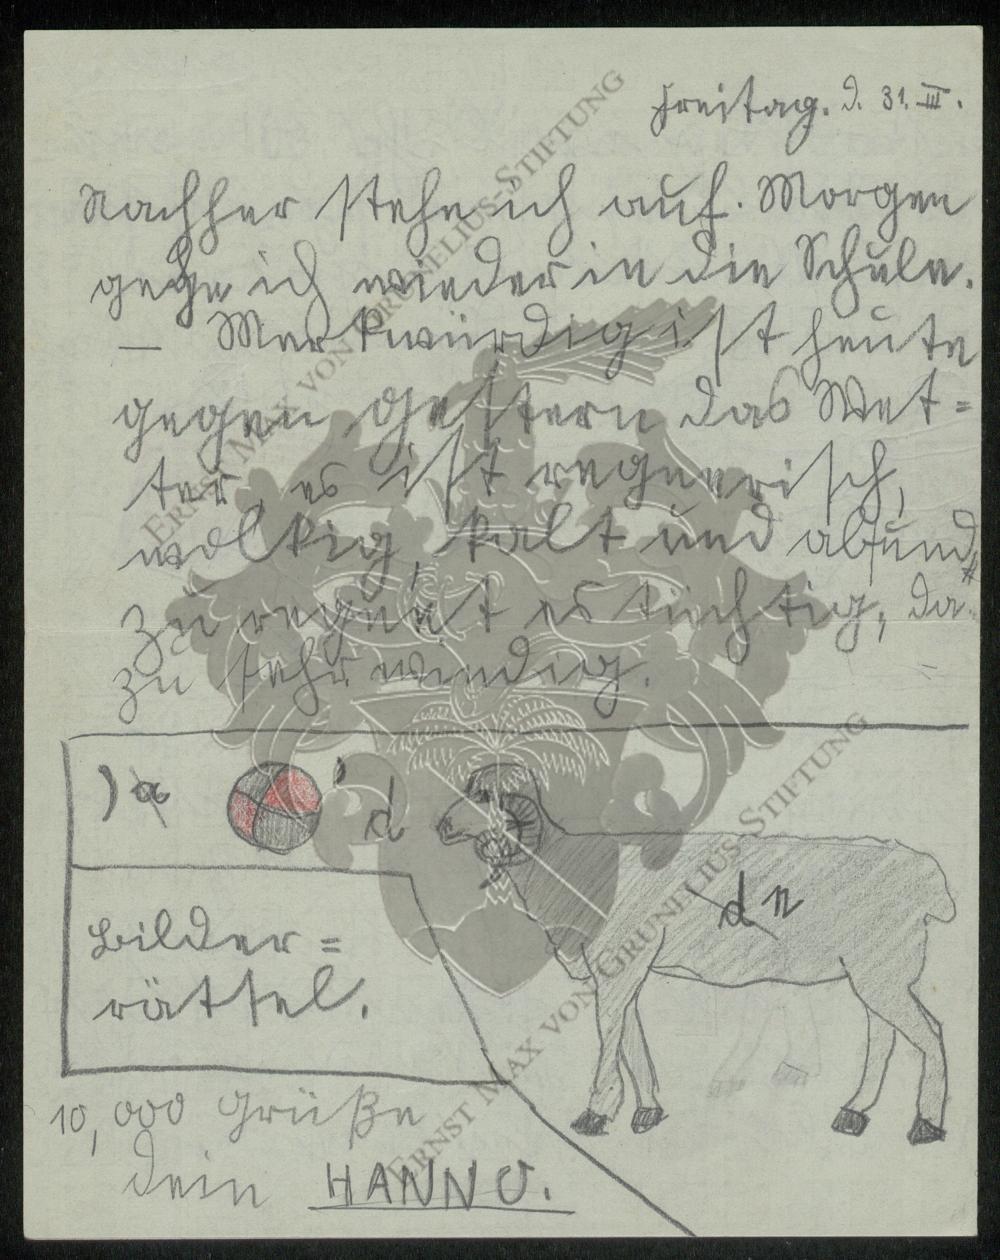 Freitag. d. 31. III.
Nachher stehe ich auf. Morgen
gehe ich wieder in die Schule.
— Merkwürdig ist heute
gegen gestern das Wet=
ter, es ist regnerisch,
wolkig, kalt und ab und
zu regnet es tüchtig, da-
zu sehr windig.
) a ' d
d n
Bilder=
rätsel.
10,000 Grüße
dein HANNO.
ERNST MAX VON GRUNELIUS-STIFTUNG
ERNST MAX VON GRUNELIUS-STIFTUNG